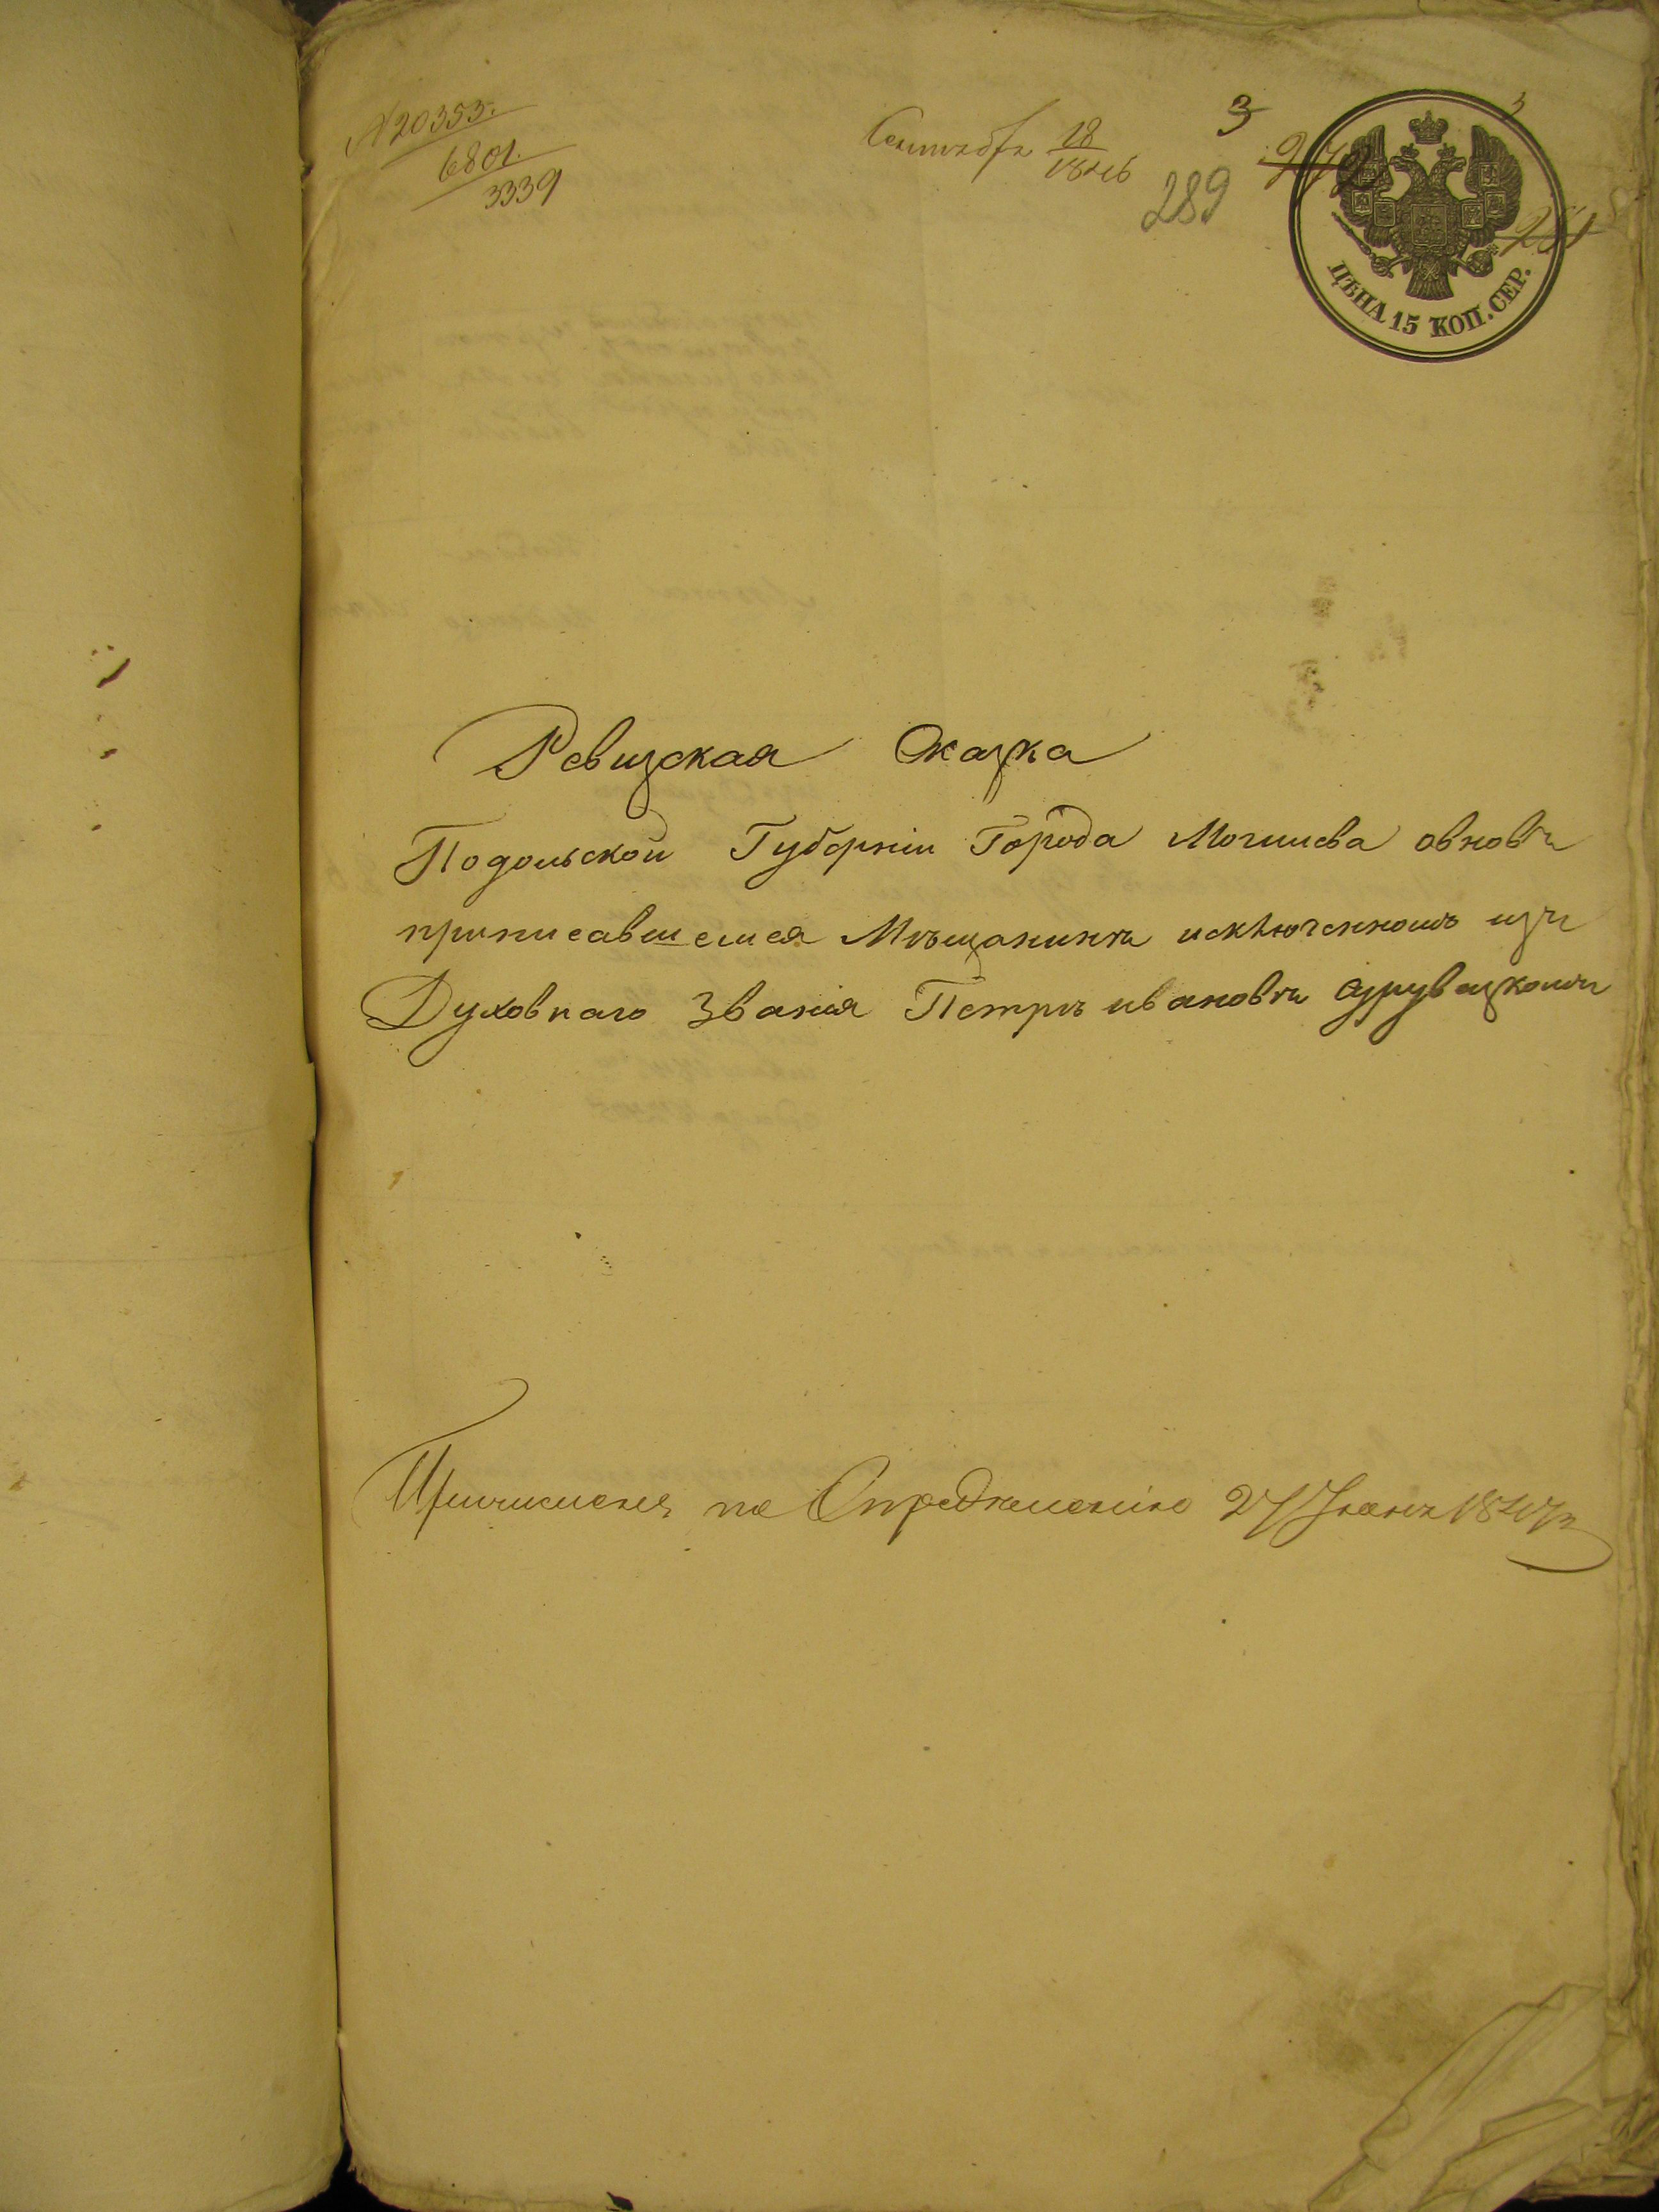 № 20353.
6801.
3339
Сентября 18
1846
3
289
ЦѢНА 15 КОП. СЕР.
Ревизская Сказка
Подольской Губерніи Города Могилева овновь
приписавшемся Мѣщанинѣ исключенномъ изъ
Духовнаго Званія Петрѣ ивановѣ
Причисленъ по Определенію 27 Іюня 1847 г